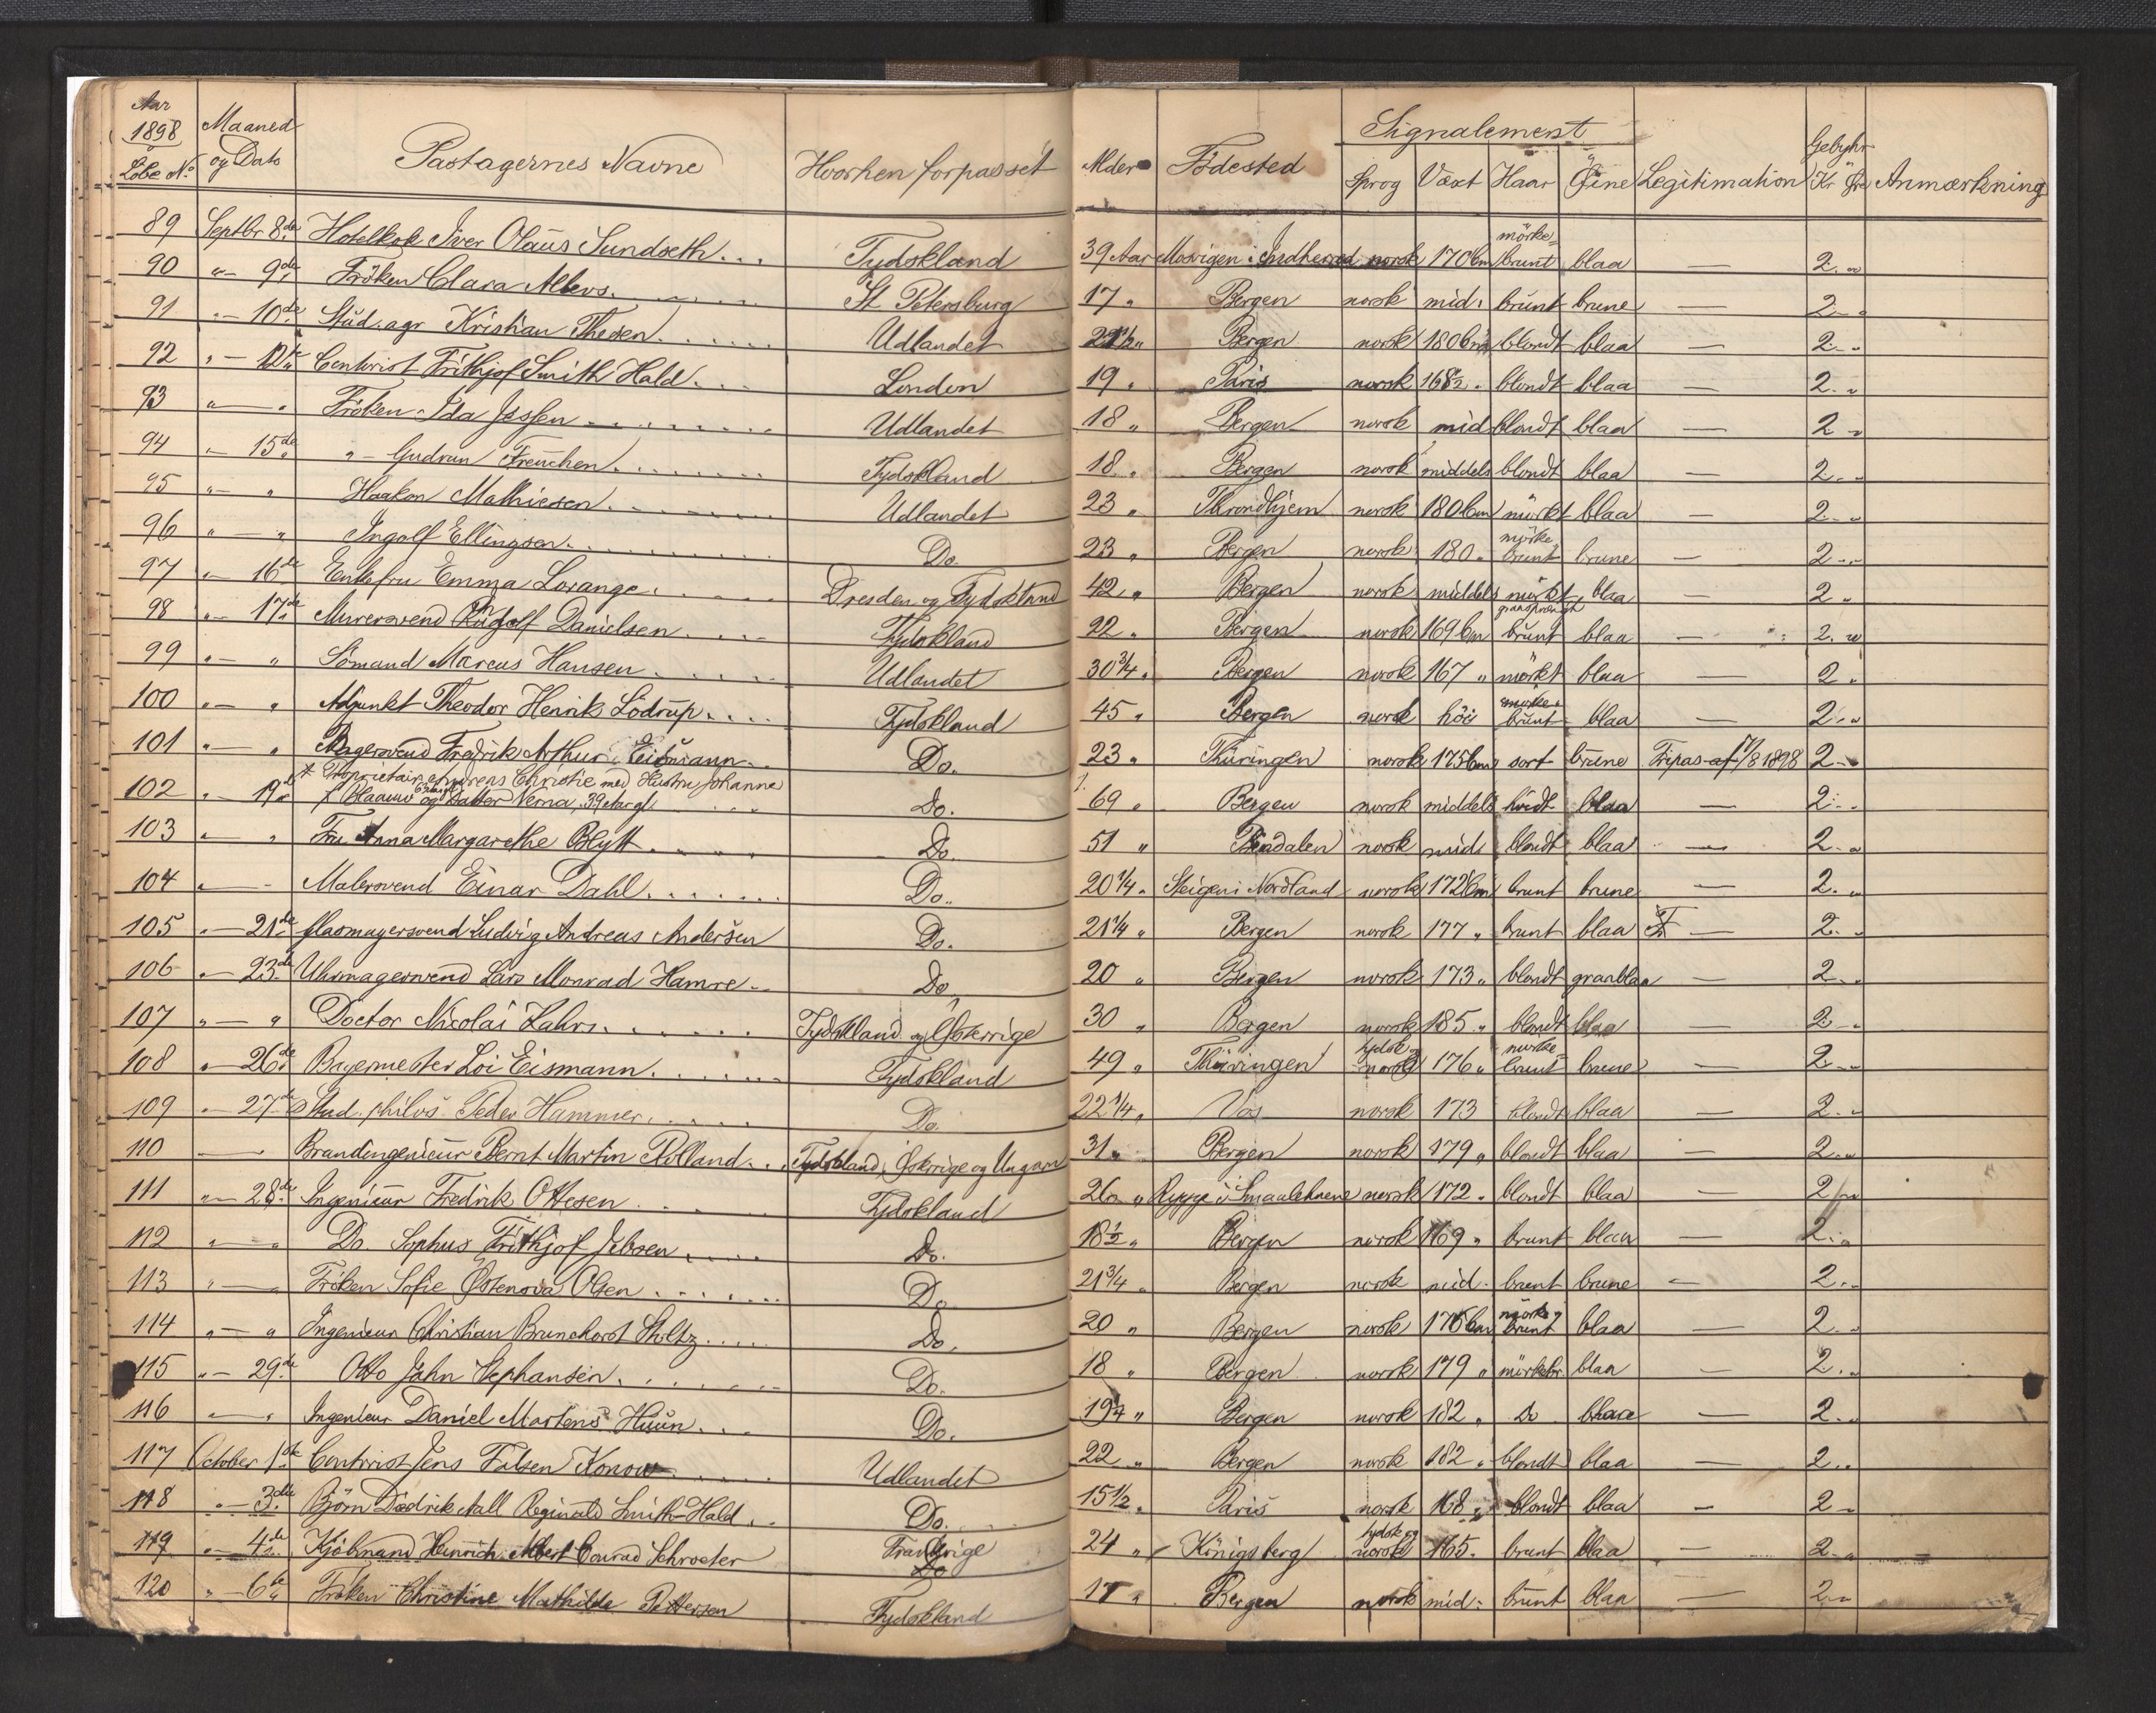 Aar 1898 Løbe No. | Maaned og Dato | Pastagernes Navne | Hvorhen forpasset | Alder | Födested | Signalement | Sprog | Växt | Haar | Öine | Legitimation | Gebyhr Kr Øre | Anmærkning
89 | Septbr 8de | Hotelkok Iver Olaus Sundseth | Tydskland | 39 Aar | Mosvigen i Indherred | norsk | 170 Cm | mörkebrunt | blaa | — | 2 "
90 | " — 9de | Fröken Clara | St Petersburg | 17 " | Bergen | norsk | mid. | brunt | brune | — | 2 "
91 | " — 10de | Stud. agr Kristian Thesen | Udlandet | 21½ " | Bergen | norsk | 180 Cm | blondt | blaa | — | 2 "
92 | " — 12te | Contorist Frithjof Smith Hald | London | 19 " | Paris | norsk | 168½ " | blondt | blaa | — | 2 "
93 | " — " | Fröken Ida Jessen | Udlandet | 18 " | Bergen | norsk | mid | blondt | blaa | — | 2 "
94 | " — 15de | " — Gudrun Freuchen | Tydskland | 18 " | Bergen | norsk | middels | blondt | blaa | — | 2 "
95 | " — " | Haakon Mathiesen | Udlandet | 23 " | Throndhjem | norsk | 180 Cm | mörkt | blaa | — | 2 "
96 | " — " | Ingolf Ellingsen | Do. | 23 " | Bergen | norsk | 180 " | mörkebrunt | brune | — | 2 "
97 | " — 16de | Enkefru Emma Lorange | Dresden og Tydskland | 42 " | Bergen | norsk | middels | mörkt graasprengt | blaa | — | 2 "
98 | " — 17de | Murersvend Rudolf Danielsen | Tydskland | 22 " | Bergen | norsk | 169 Cm | brunt | blaa | — | 2 "
99 | " — " | Sömand Marcus Hansen | Udlandet | 30¾ " | Bergen | norsk | 167 " | mörkt | blaa | — | 2 "
100 | " — " | Adjunkt Theodor Henrik Lödrup | Tydskland | 45 " | Bergen | norsk | höi | mörkebrunt | blaa | — | 2 "
101 | " — " | Bagersvend Fredrik Arthur Eismann | Do. | 23 " | Thüringen | norsk | 175 Cm | sort | brune | Fripas af /8 1898 | 2 "
102 | " — 19de | Proprietair Andreas Christie med Hustru Johanne f. Blaauw 63 aar gl og Datter Nerna, 39 Aar gl | Do. | 69 " | Bergen | norsk | middels | hvidt | blaa | — | 2 "
103 | " — " | Fru Anna Margarethe Blytt | Do. | 51 " | Bindalen | norsk | mid | blondt | blaa | — | 2 "
104 | " — | Malersvend Einar Dahl | Do. | 20¼ " | Steigen i Nordland | norsk | 172 Cm | brunt | brune | — | 2 "
105 | " — 21de | Glasmagersvend Ludvig Andreas Andersen | Do. | 21¼ " | Bergen | norsk | 177 " | brunt | blaa | — | 2 "
106 | " — 23de | Uhrmagersvend Lars Monrad Hamre | Do | 20 " | Bergen | norsk | 173 " | blondt | graablaa | — | 2 "
107 | " — " | Doctor Nicolai | Tydskland og Østerrige | 30 " | Bergen | norsk | 185 " | blondt | blaa | — | 2 "
108 | " — 26de | Bagermester Loi Eismann | Tydskland | 49 " | Thüringen | tydsk norsk | 176 " | mörkebrunt | brune | — | 2 "
109 | " — 27de | Stud. philos. Peder Hammer | Do. | 22¼ " | Vos | norsk | 173 | blondt | blaa | — | 2 "
110 | — | Brandingenieur Bernt Martin Rolland | Tydskland, Østerige og Ungarn | 31 " | Bergen | norsk | 179 " | blondt | blaa | — | 2 "
111 | " — 28de | Ingenieur Fredrik Ottesen | Tydskland | 26 " | Rygge i Smaalehnene | norsk | 172 " | blondt | blaa | — | 2 "
112 | " — " | Do. Sophus Frithjof Jebsen | Do. | 18½ " | Bergen | norsk | 169 " | brunt | blaa | — | 2 "
113 | " — " | Fröken Sofie Olsen | Do. | 21¾ " | Bergen | norsk | mid. | brunt | brune | — | 2 "
114 | " — " | Ingenieur Christian Brunchorst Stoltz | Do. | 20 " | Bergen | norsk | 176 Cm | mörkebrunt | blaa | — | 2 "
115 | " — 29de | Otto John Stephansen | Do. | 18 " | Bergen | norsk | 179 " | mörkebr. | blaa | — | 2 "
116 | " — " | Ingenieur Daniel Martens Huun | Do. | 19 " | Bergen | norsk | 182 " | Do | blaa | — | 2 "
117 | October 1ste | Contorist Jens Falsen Konow | Udlandet | 22 " | Bergen | norsk | 182 " | blondt | blaa | — | 2 "
118 | " — 3die | Björn Diedrik Aall Reginald Smith-Hald | Do. | 15½ " | Paris | norsk | 168 " | blondt | blaa | — | 2 "
119 | " — 4de | Kjöbmand Heinrich Albert Conrad Schroeter | Frankrige | 24 " | Königsberg | tydsk og norsk | 165 " | brunt | blaa | — | 2 "
120 | " — 6te | Fröken Christine Mathilde Pettersen | Tydskland | 17 " | Bergen | norsk | mid. | brunt | blaa | — | 2 "